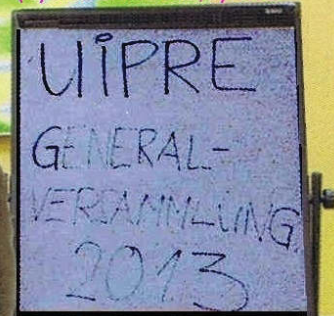 UiPRE
GENERAL-
VERSAMMLUNG
2013